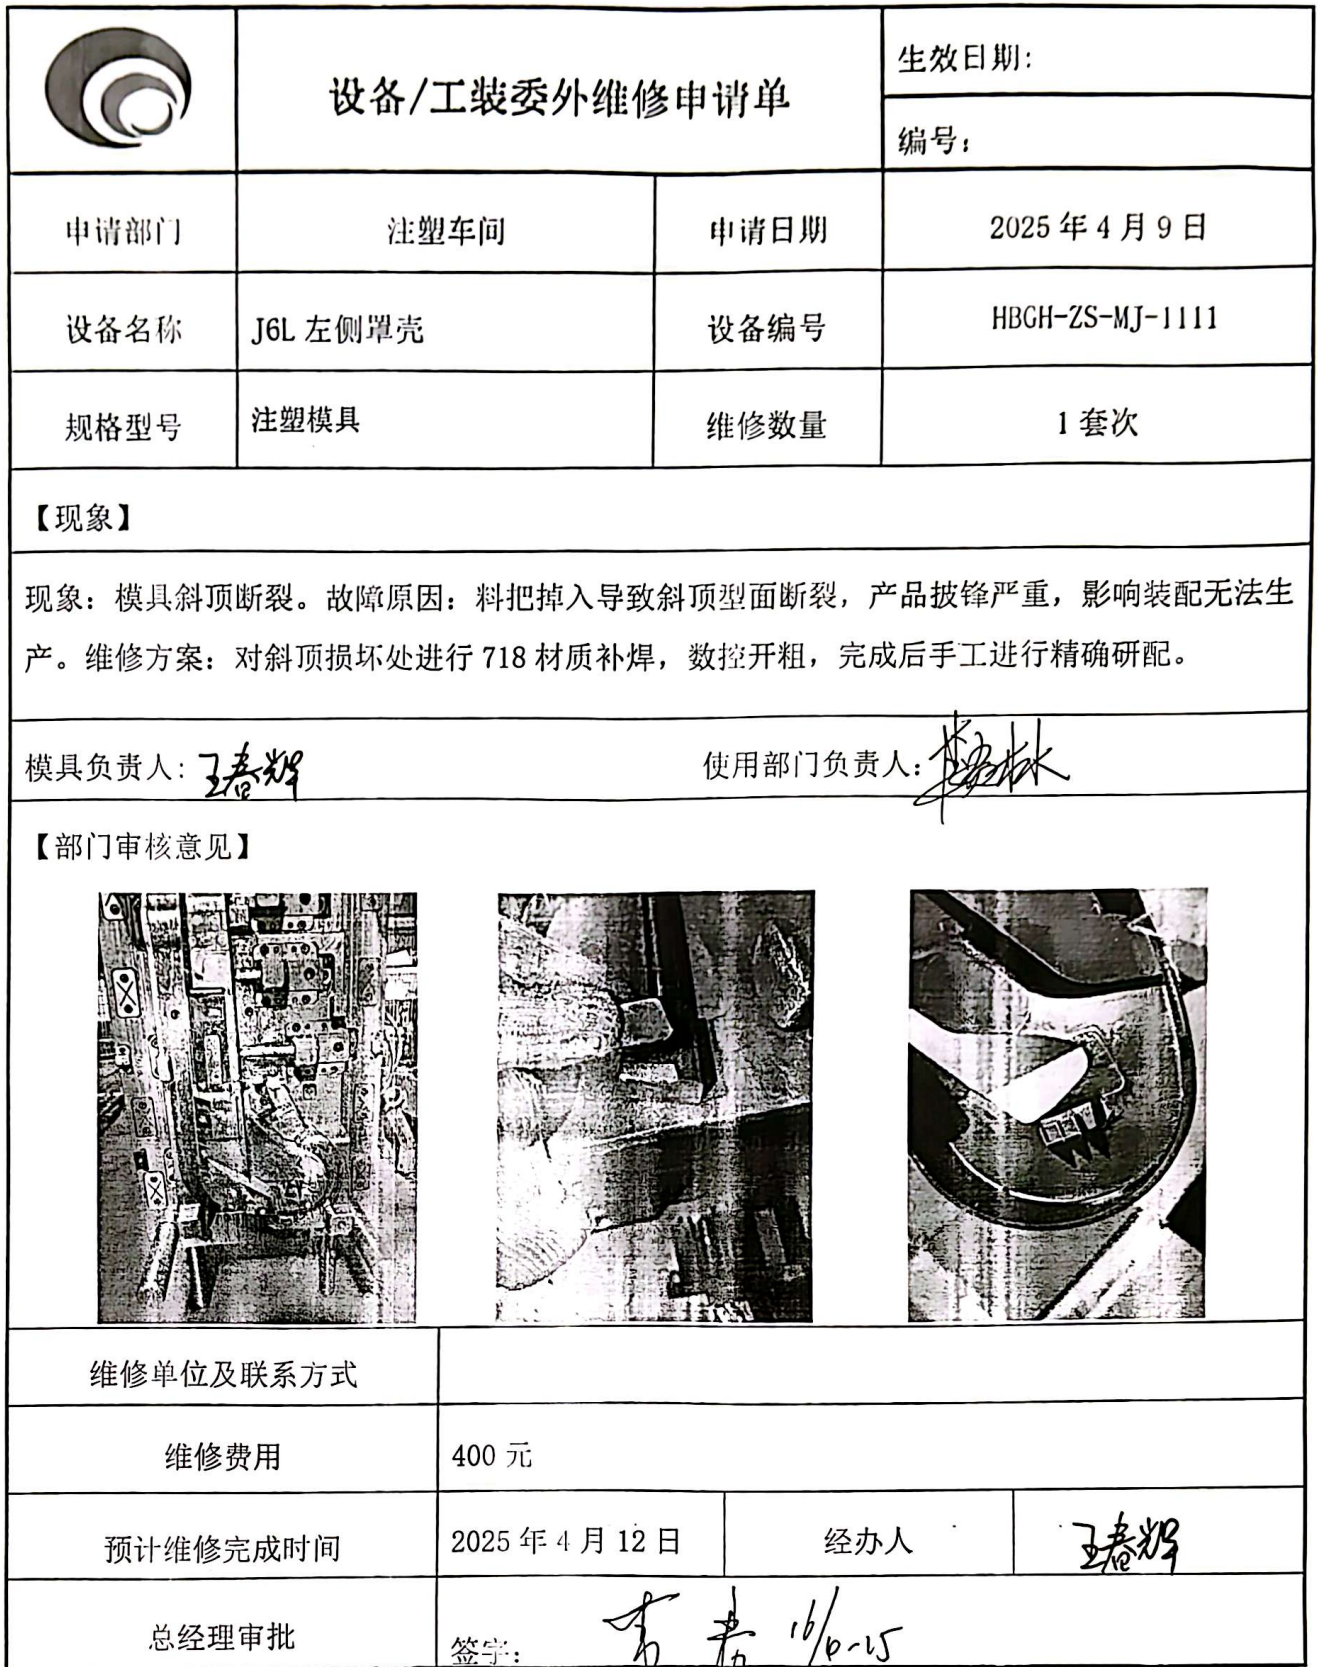 设备/工装委外维修申请单
生效日期:
编号:
申请部门 注塑车间 申请日期 2025年4月9日
设备名称 J6L左侧罩壳 设备编号 HBGH-ZS-MJ-1111
规格型号 注塑模具 维修数量 1套次
【现象】
现象：模具斜顶断裂。故障原因：料把掉入导致斜顶型面断裂，产品披锋严重，影响装配无法生
产。维修方案：对斜顶损坏处进行718材质补焊，数控开粗，完成后手工进行精确研配。
模具负责人: 王春辉 使用部门负责人:
【部门审核意见】
维修单位及联系方式
维修费用 400元
预计维修完成时间 2025年4月12日 经办人 王春辉
总经理审批 签字: